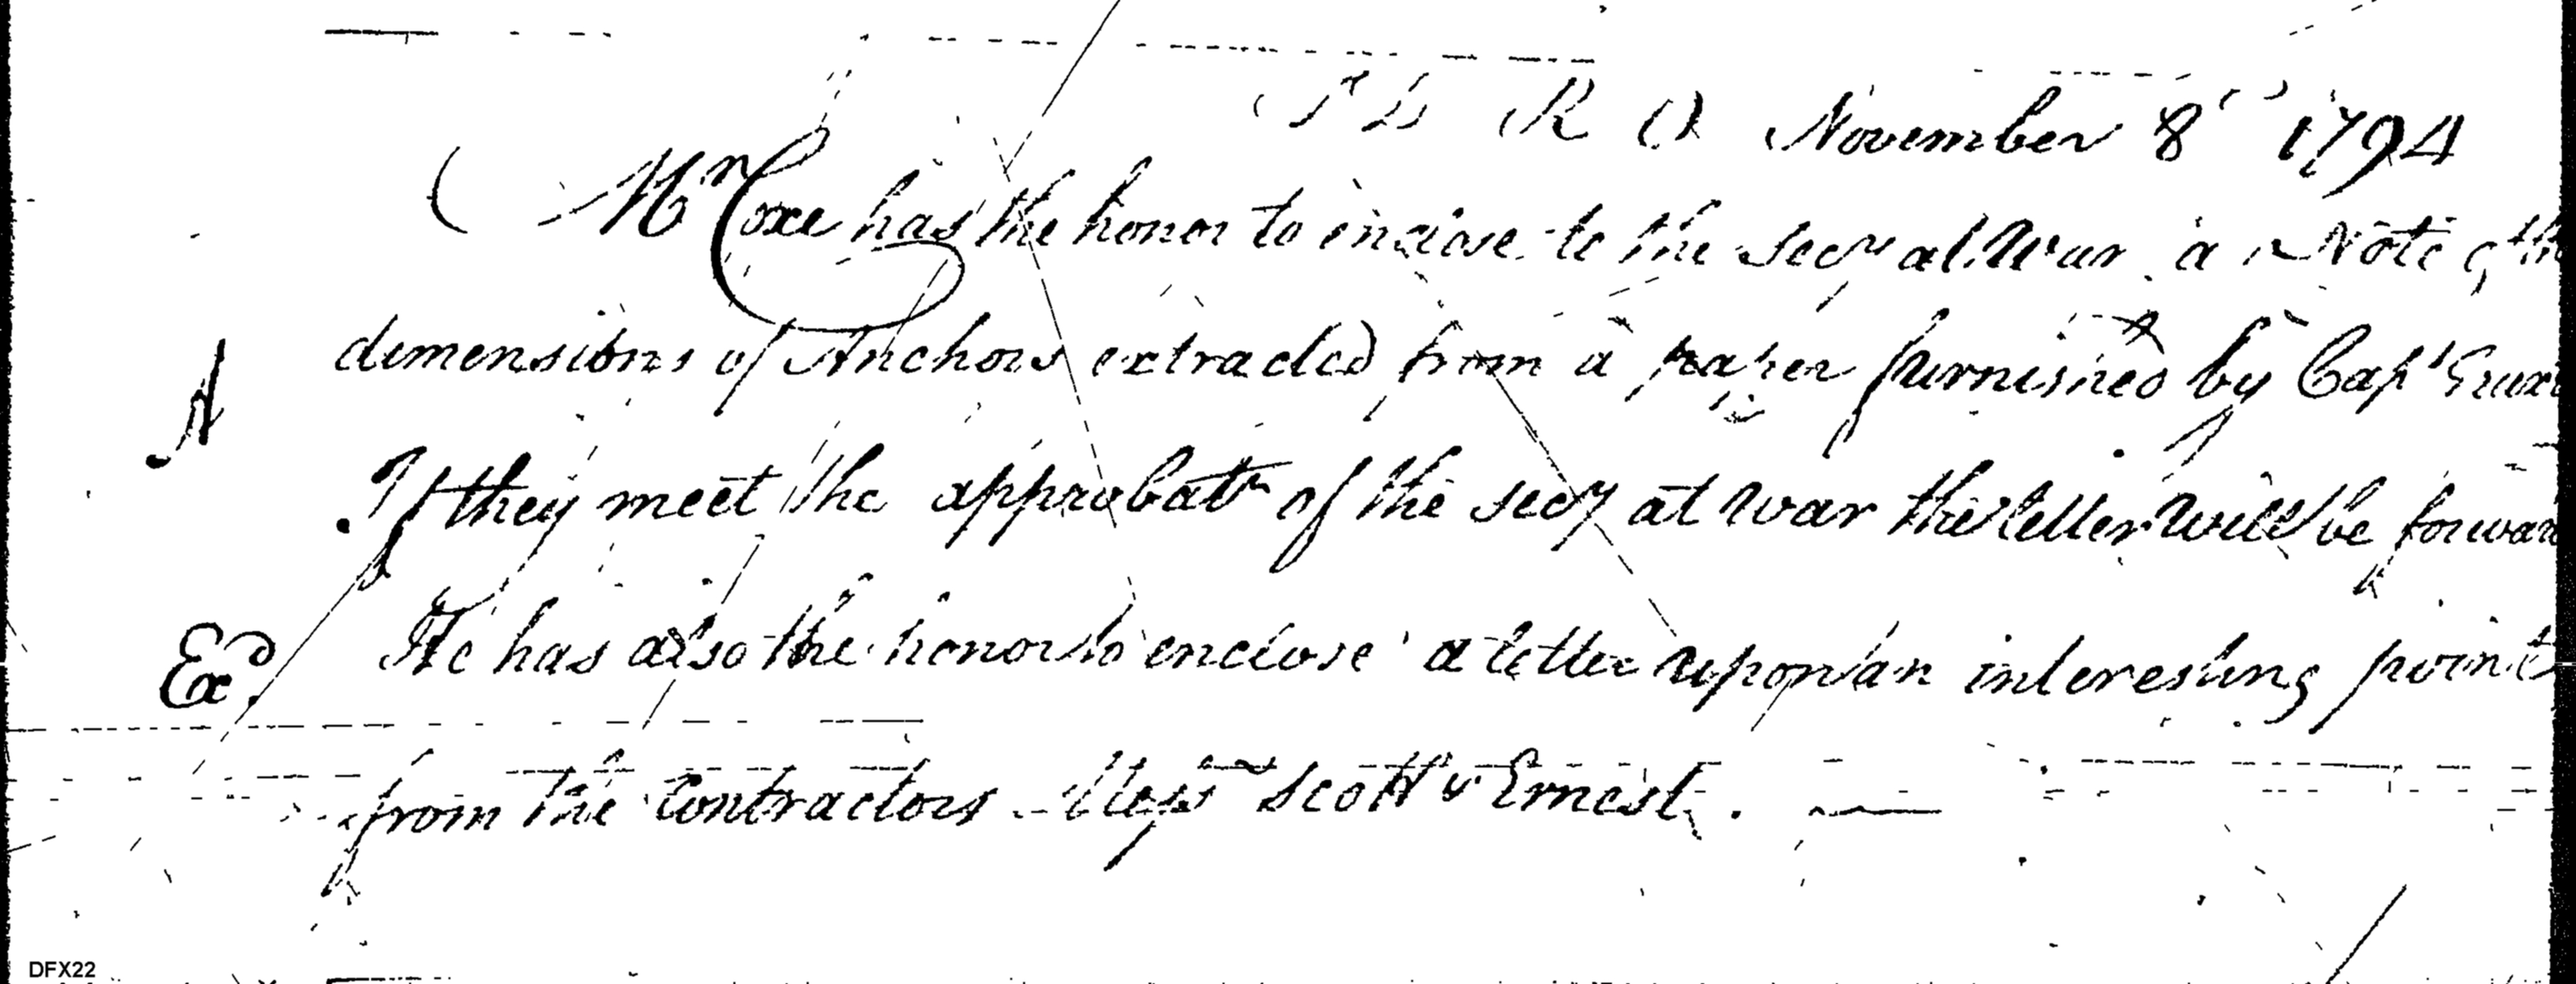 T D R O November 8th 1794
Mr Coxe has the honor to inclose to the Secy at War a Note of th
dimensions of Anchors extracted from a paper furnished by Capt Trux
A
If they meet the approbatn of the secy at war the letter will be forwar
Exd
He has also the honor to enclose a letter upon an interesting point
from the Contractors Messrs Scott & Ernest.
DFX22